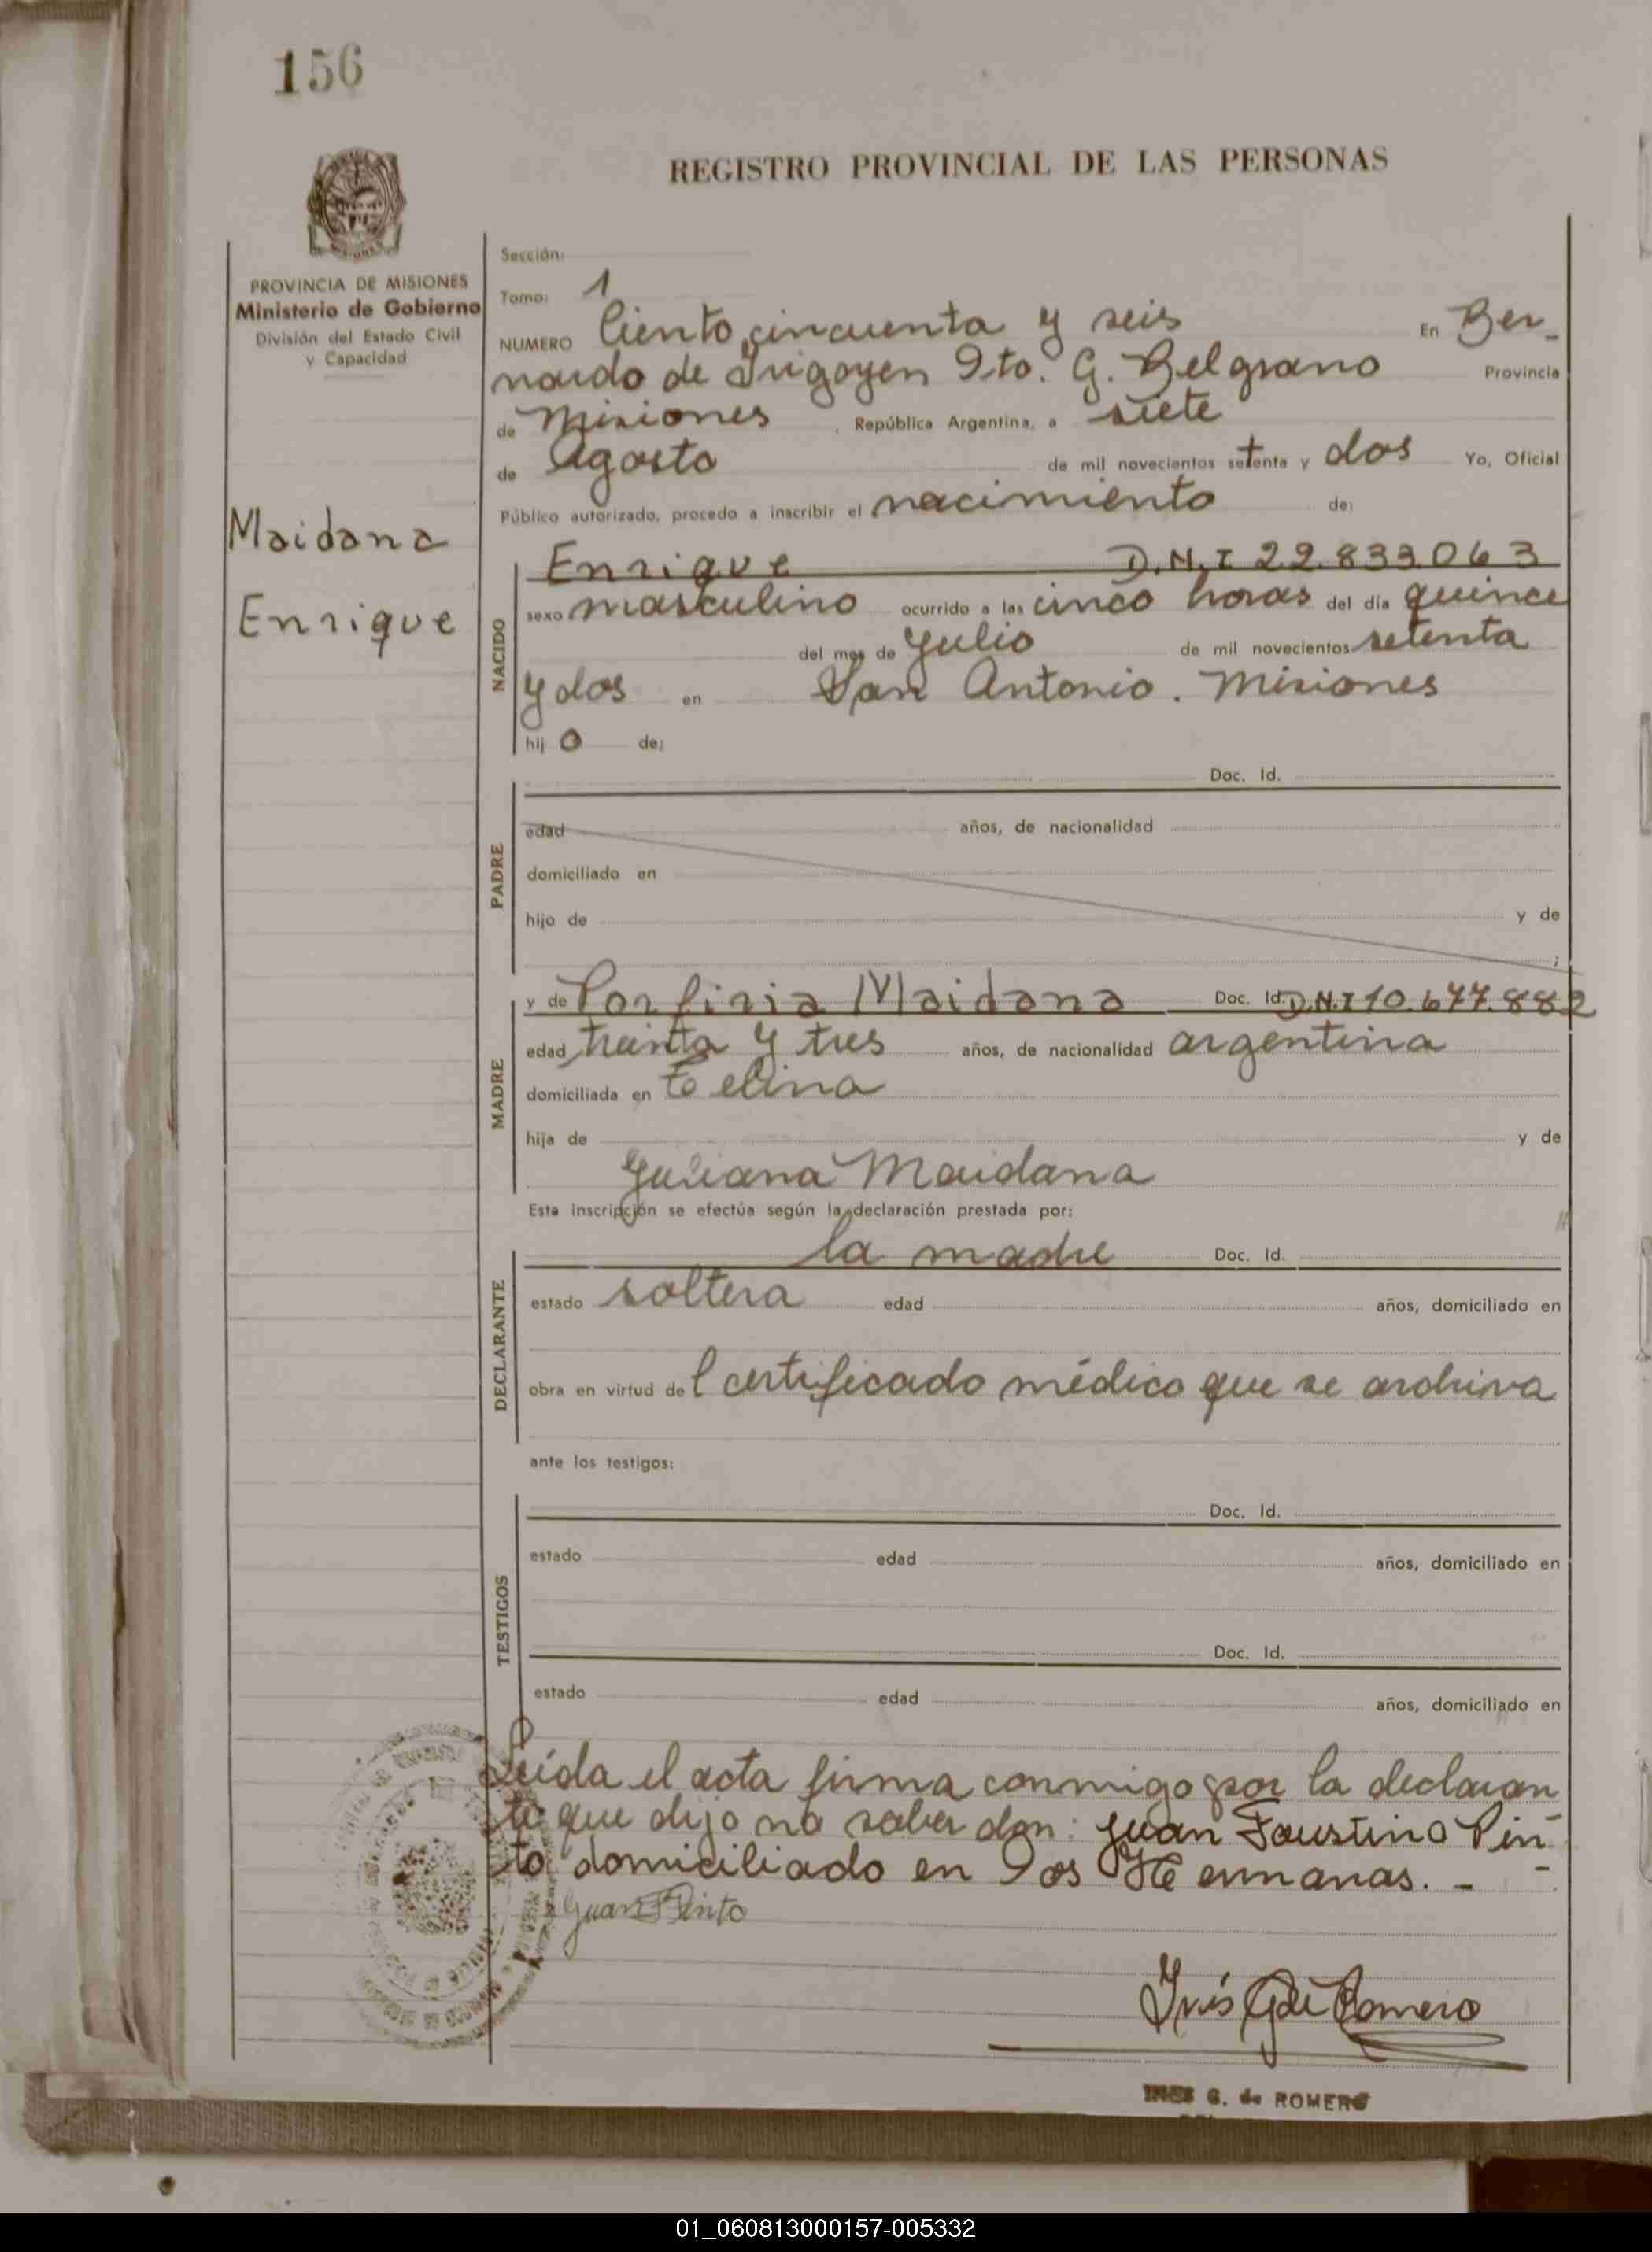 156
REGISTRO PROVINCIAL DE LAS PERSONAS
PROVINCIA DE MISIONES
Ministerio de Gobierno
División del Estado Civil
y Capacidad
Maidana
Enrique
Sección:
Tomo: 1
NUMERO Ciento cincuenta y seis En Ber-
nardo de Irigoyen Dto. G. Belgrano Provincia
de Misiones, República Argentina, a siete
de Agosto de mil novecientos setenta y dos Yo, Oficial
Público autorizado, procedo a inscribir el nacimiento de:
NACIDO
Enrique D.N.I 22.833.063
sexo masculino ocurrido a las cinco horas del día quince
del mes de Julio de mil novecientos setenta
y dos en San Antonio. Misiones
hijo de:
PADRE
Doc. Id.
edad años, de nacionalidad
domiciliado en
hijo de y de
;
MADRE
y de Porfiria Maidana Doc. Id. D.N.I 10.677.882
edad treinta y tres años, de nacionalidad argentina
domiciliada en
hija de y de
Juliana Maidana
Esta inscripción se efectúa según la declaración prestada por:
DECLARANTE
la madre Doc. Id.
estado soltera edad años, domiciliado en
obra en virtud del certificado médico que se archiva
ante los testigos:
TESTIGOS
Doc. Id.
estado edad años, domiciliado en
Doc. Id.
estado edad años, domiciliado en
Leída el acta firma conmigo por la declaran
te que dijo no saber don: Juan Faustino Pin-
to domiciliado en Dos Hermanas. -
Juan F Pinto
Inés G de Romero
INES G. de ROMERO
01_060813000157-005332